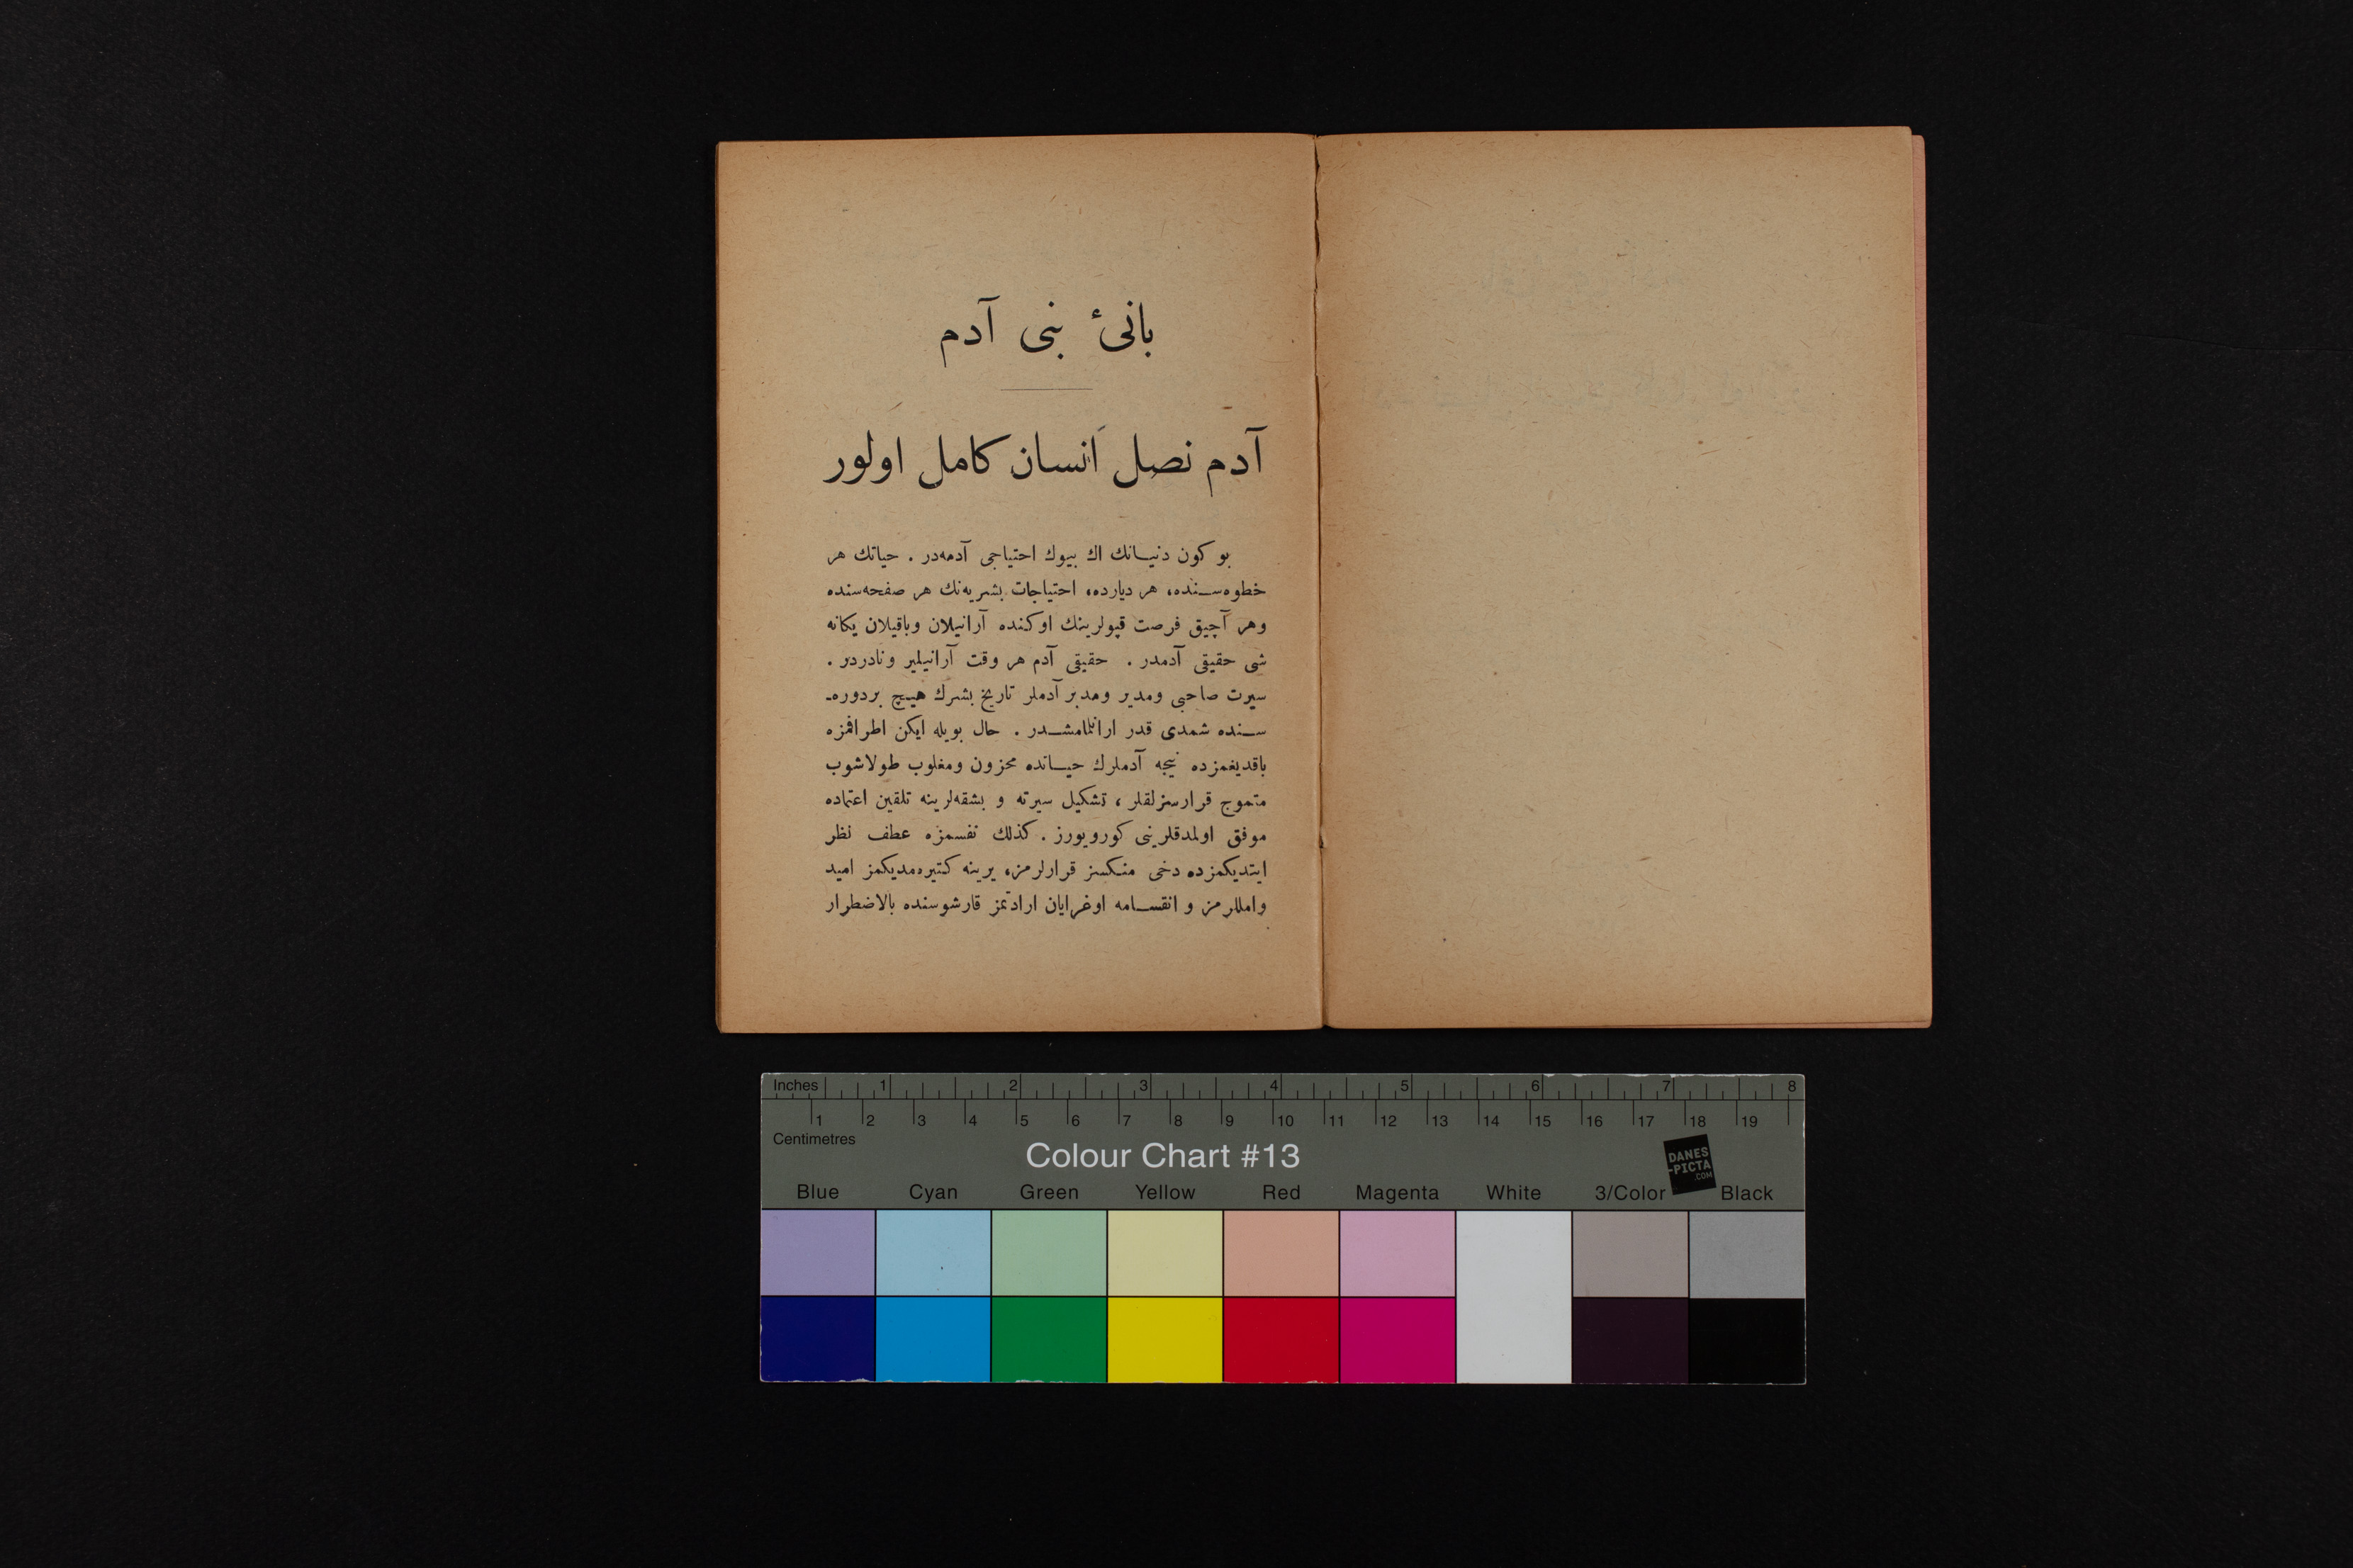 بانیٔ بنی آدم
آدم نصل اَنسان كامل اولور
بو كون دنيـانك اك بيوك احتياجی آدمه‌در . حياتك هر
خطوه‌سـنده، هر ديارده، احتياجات بشريه‌نك هر صفحه‌سنده
وهر آچيق فرصت قپولرينك اوكنده آرانيلان وباقيلان يكانه
شی حقيقی آدمدر . حقيقی آدم هر وقت آرانيلير ونادردر .
سيرت صاحبی ومدير ومدبر آدملر تاريخ بشرك هيـچ بردوره‌ـ
سـنده شمدی قدر ارانلمامشـدر . حال بويله ايكن اطرافمزه
باقديغمزده نيجه آدملرك حيـاتده محزون ومغلوب طولاشوب
متموج قرارسزلقلر ، تشكيل سيرته و بشقه‌لرينه تلقين اعتماده
موفق اولمدقلرينی كورويورز . كذلك نفسمزه عطف نظر
ايتديكمزده دخی منكسز قرارلرمز، يرينه كتيره‌مديكمز اميد
واماللرمز و انقسـامه اوغرايان ارادتمز قارشوسنده بالاضطرار
Inches 1 2 3 4 5 6 7 8
1 2 3 4 5 6 7 8 9 10 11 12 13 14 15 16 17 18 19
Centimetres
Colour Chart #13
DANES
-PICTA
.COM
Blue Cyan Green Yellow Red Magenta White 3/Color Black